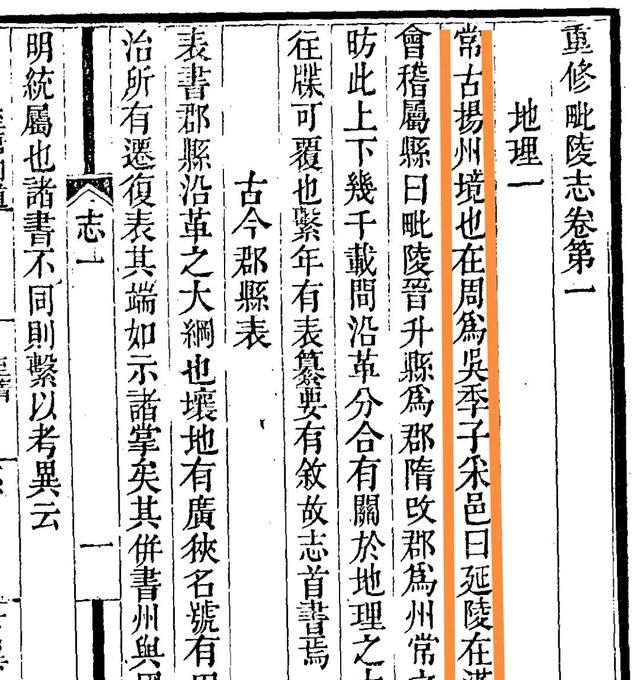 重修毗陵志卷第一
地理一
常古揚州境也在周爲吳季子采邑曰延陵在漢
會稽屬縣曰毗陵晉升縣爲郡隋改郡爲州常之
昉此上下幾千載間沿革分合有關於地理之大
往牒可覆也繫年有表纂要有敘故志首書焉
古今郡縣表
表書郡縣沿革之大綱也壤地有廣狹名號有
治所有遷復表其端如示諸掌矣其併書州與
志一
一
明統屬也諸書不同則繫以考異云